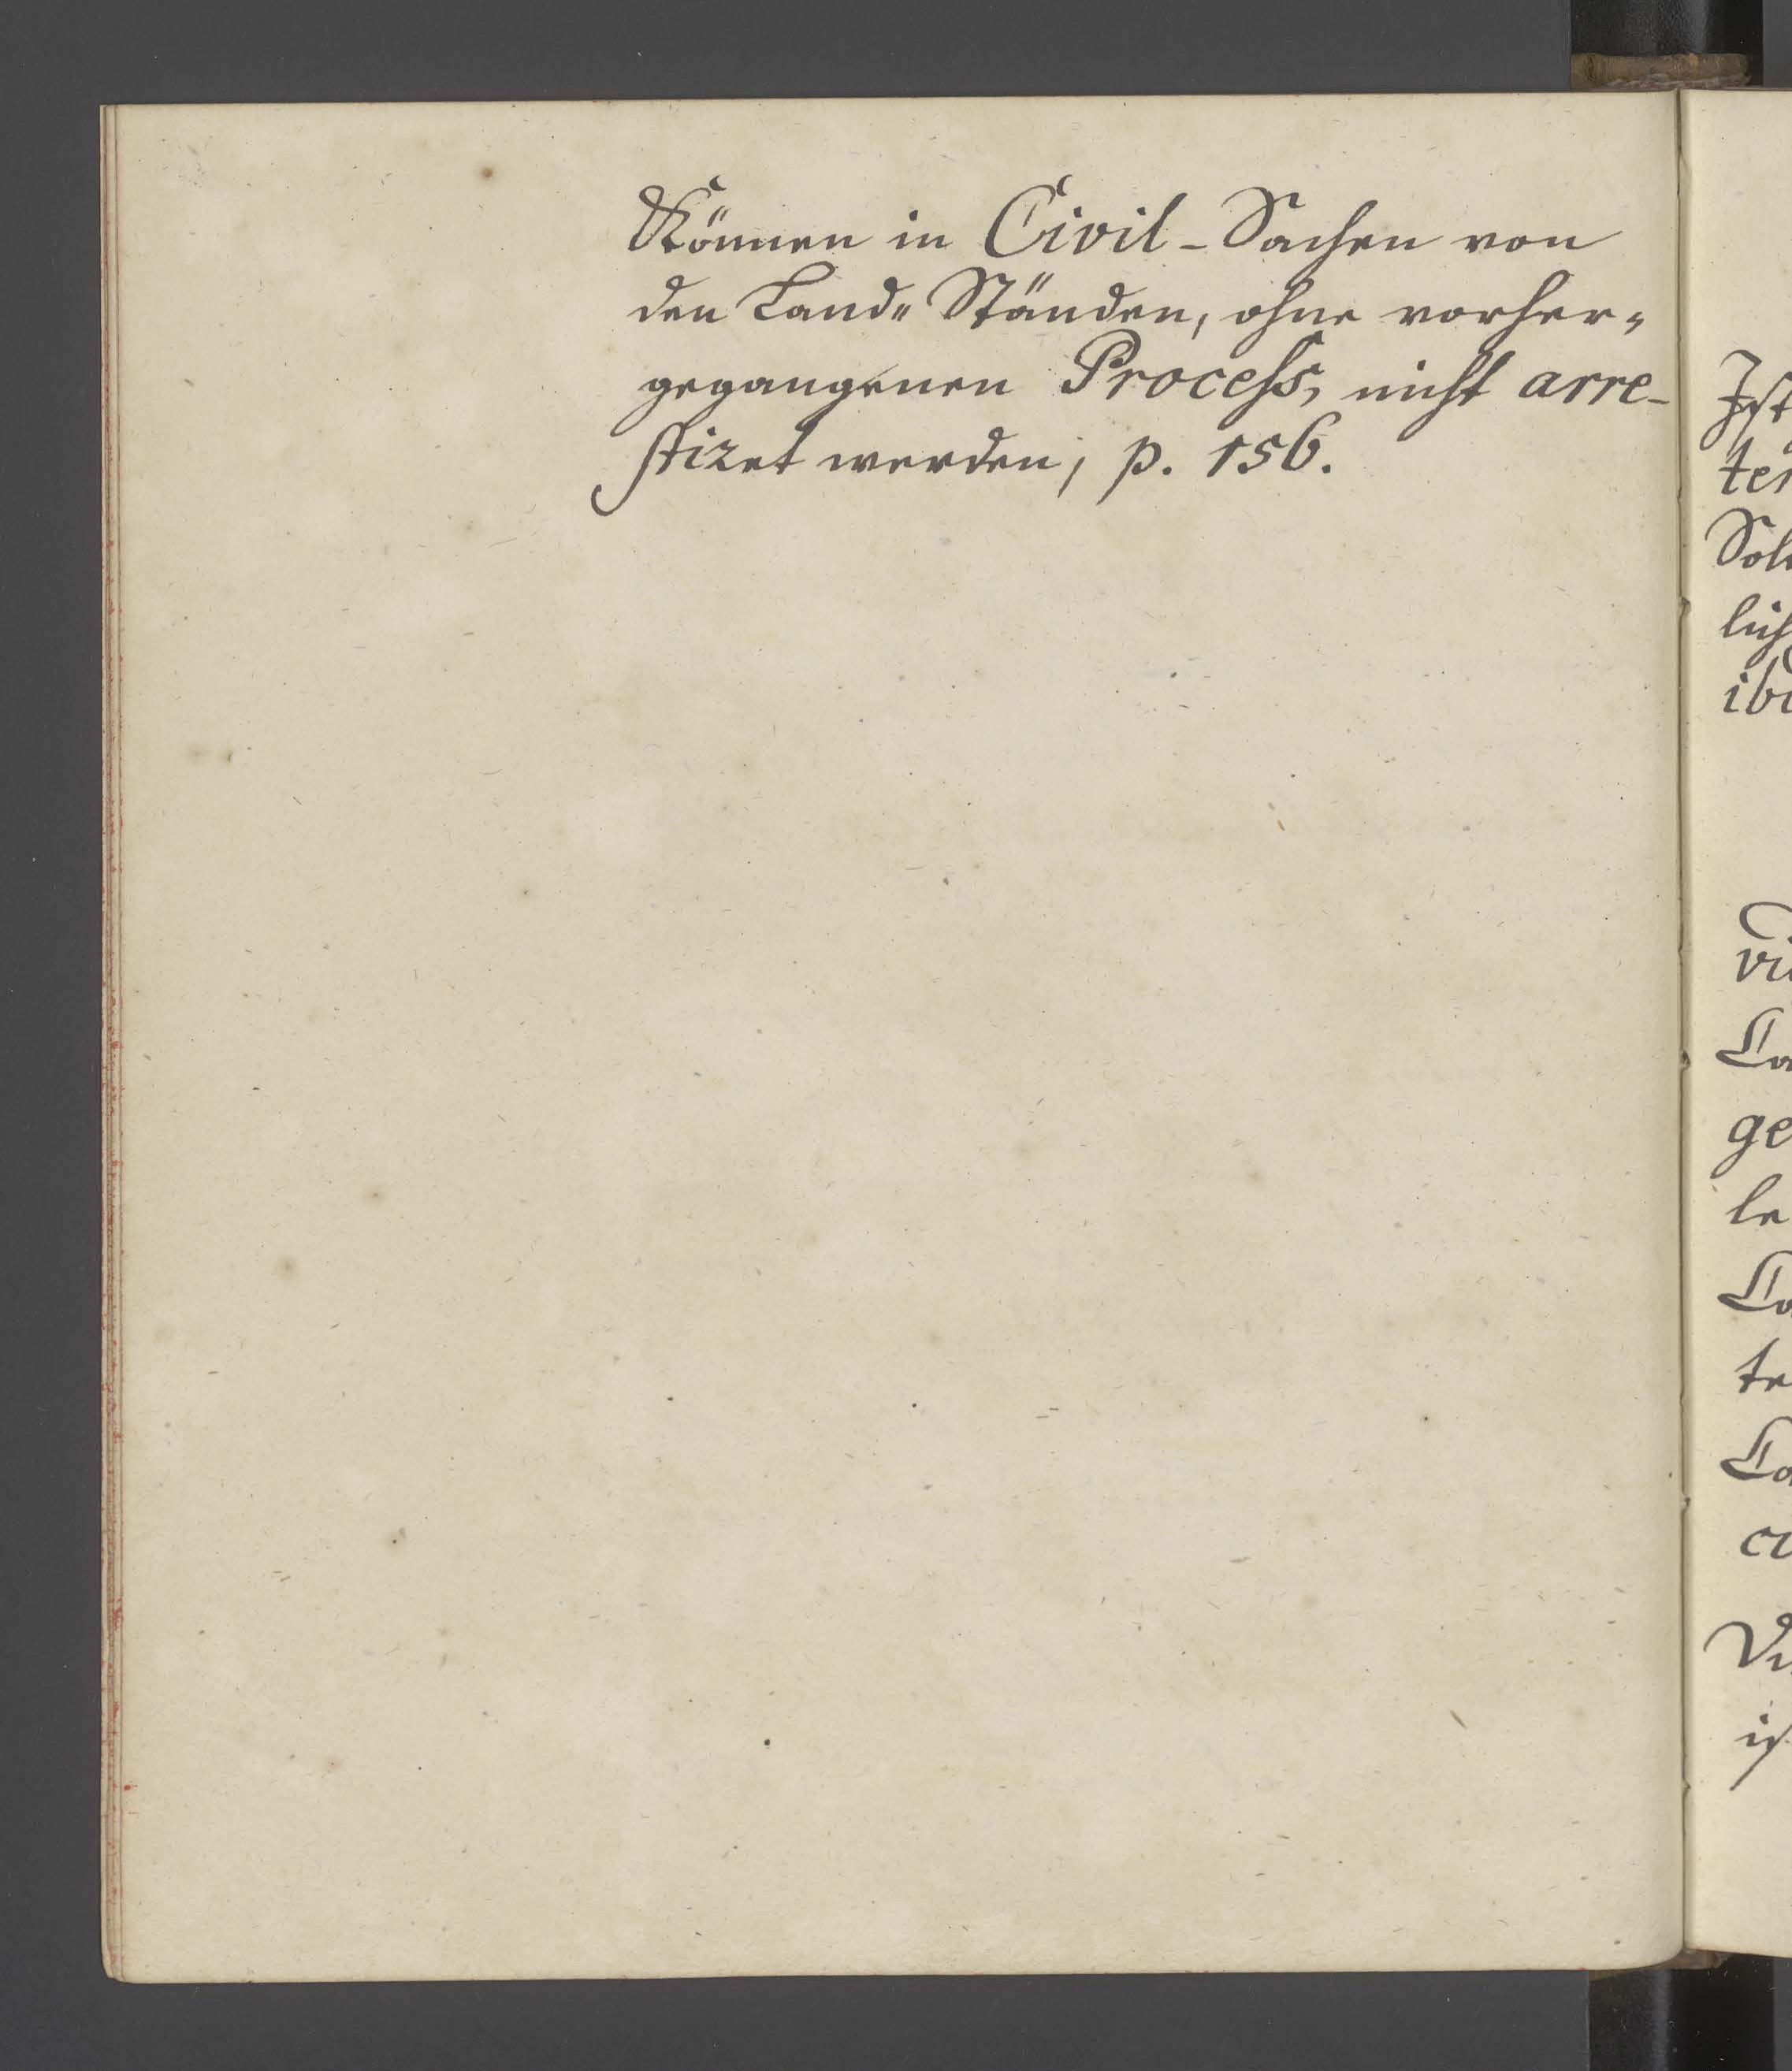 Können in Civil-Sachen von
den Land= Ständen, ohne vorher=
gegangenen Process, nicht arre-
stiret werden, p. 156.
Ist
le